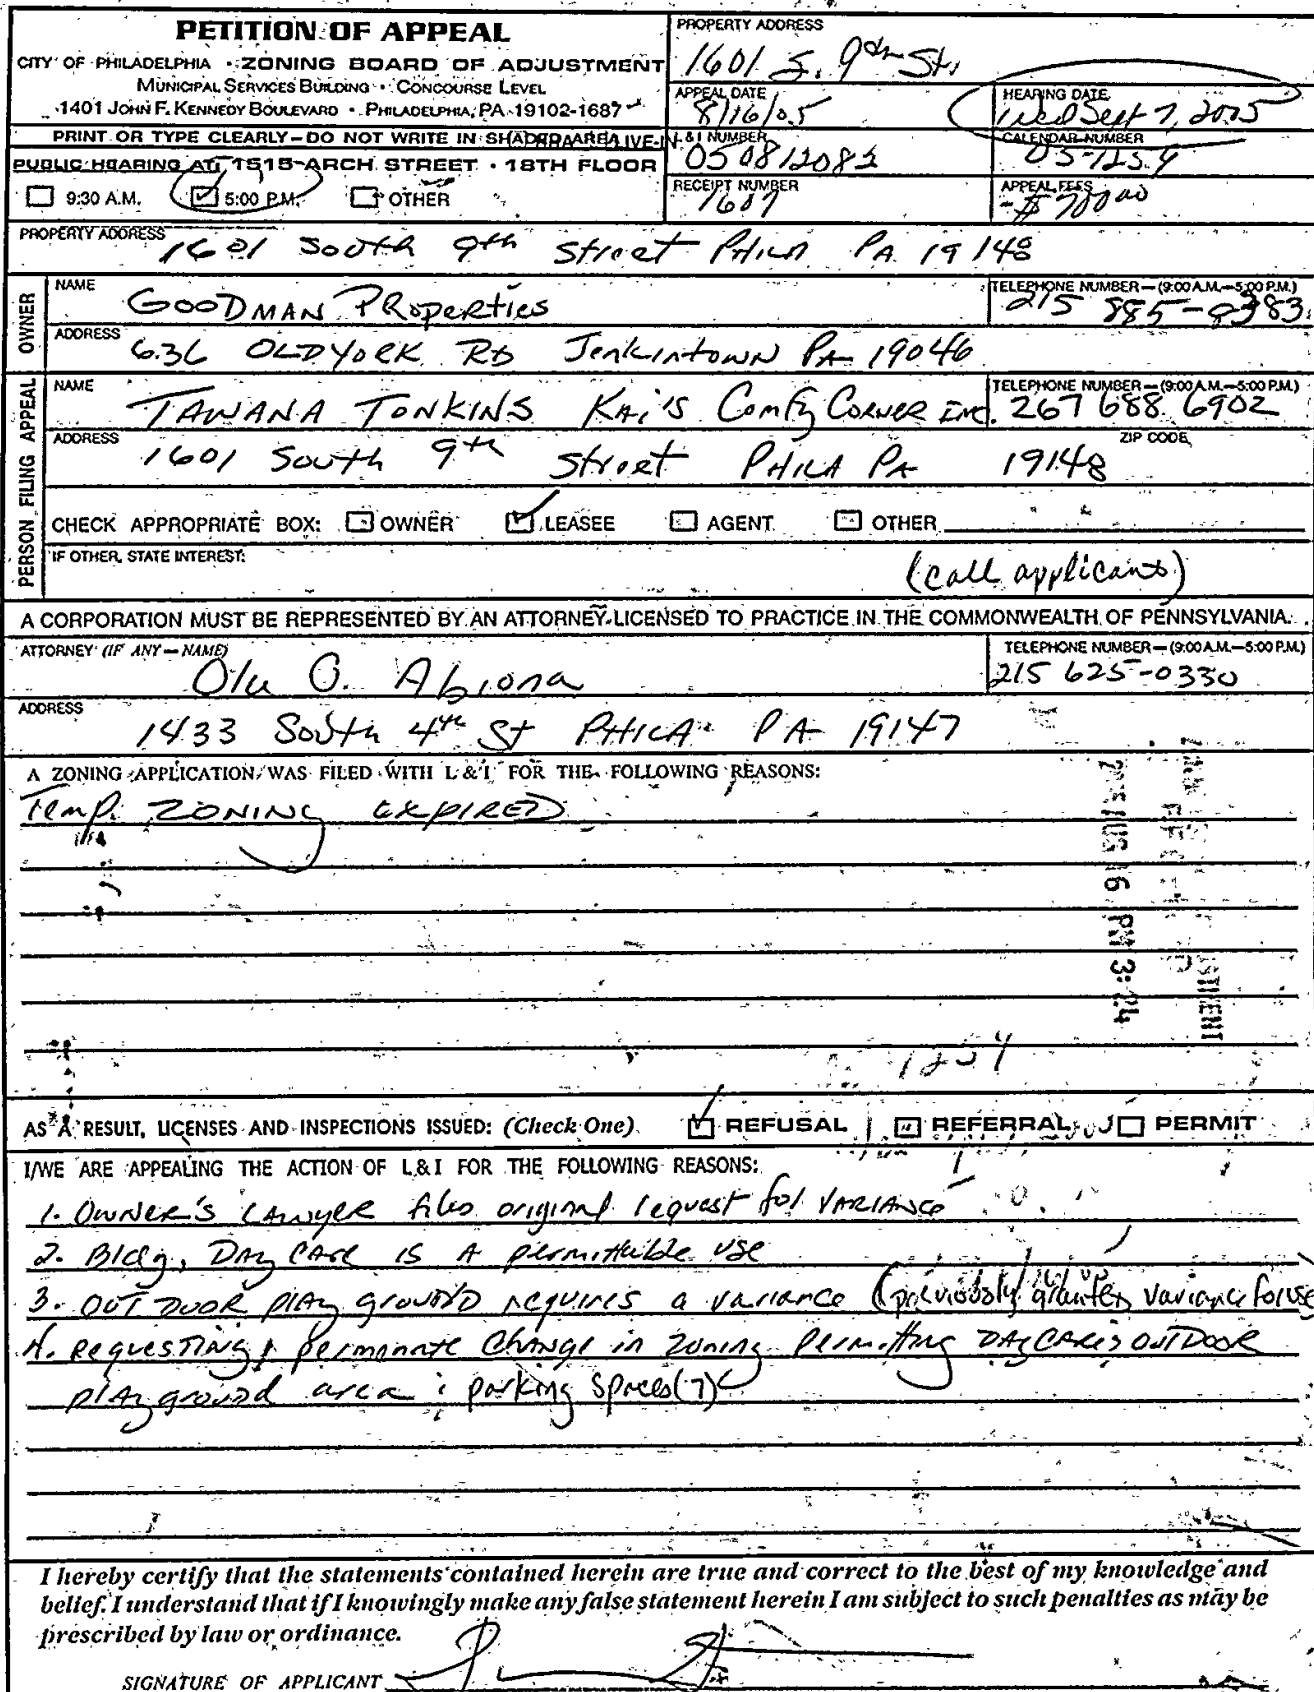 PETITION OF APPEAL
CITY OF PHILADELPHIA • ZONING BOARD OF ADJUSTMENT
MUNICIPAL SERVICES BUILDING • CONCOURSE LEVEL
1401 JOHN F. KENNEDY BOULEVARD • PHILADELPHIA, PA 19102-1687
PRINT OR TYPE CLEARLY—DO NOT WRITE IN SHADED AREA
PUBLIC HEARING AT: 1515 ARCH STREET • 18TH FLOOR
9:30 A.M. 5:00 P.M. OTHER
PROPERTY ADDRESS
1601 S. 9th St.
APPEAL DATE
8/16/05
HEARING DATE
Wed Sept 7, 2005
L & I NUMBER
CALENDAR NUMBER
05-1254
RECEIPT NUMBER
1607
APPEAL FEES
PROPERTY ADDRESS
1601 South 9th Street PHILA PA 19148
OWNER
NAME
GOODMAN PROperties
TELEPHONE NUMBER—(9:00 A.M.—5:00 P.M.)
215 885-8383
ADDRESS
636 OLD YORK RD Jenkintown PA 19046
PERSON FILING APPEAL
NAME
TAWANA TONKINS KAI'S Comfy CORNER INC.
TELEPHONE NUMBER—(9:00 A.M.—5:00 P.M.)
267 688 6902
ADDRESS
ZIP CODE
1601 South 9th Street PHILA PA 19148
CHECK APPROPRIATE BOX: OWNER LEASEE AGENT OTHER
IF OTHER, STATE INTEREST:
(call applicant)
A CORPORATION MUST BE REPRESENTED BY AN ATTORNEY LICENSED TO PRACTICE IN THE COMMONWEALTH OF PENNSYLVANIA.
ATTORNEY (IF ANY—NAME)
Olu O. Abiona
TELEPHONE NUMBER—(9:00 A.M.—5:00 P.M.)
215 625-0330
ADDRESS
1433 South 4th St PHILA PA 19147
A ZONING APPLICATION WAS FILED WITH L & I FOR THE FOLLOWING REASONS:
Temp. ZONING EXPIRED
AUG 16 PM 3:24
1254
AS A RESULT, LICENSES AND INSPECTIONS ISSUED: (Check One) REFUSAL REFERRAL PERMIT
I/WE ARE APPEALING THE ACTION OF L & I FOR THE FOLLOWING REASONS:
1. OWNER'S LAWYER files original request for VARIANCE
2. Bldg, DAY CARE IS A permittable use
3. OUTDOOR play ground requires a variance (previously granted variance for use)
4. requesting permanate Change in zoning Permitting DAYCARE OUTDOOR
play ground area parking spaces (7)
I hereby certify that the statements contained herein are true and correct to the best of my knowledge and
belief. I understand that if I knowingly make any false statement herein I am subject to such penalties as may be
prescribed by law or ordinance.
SIGNATURE OF APPLICANT